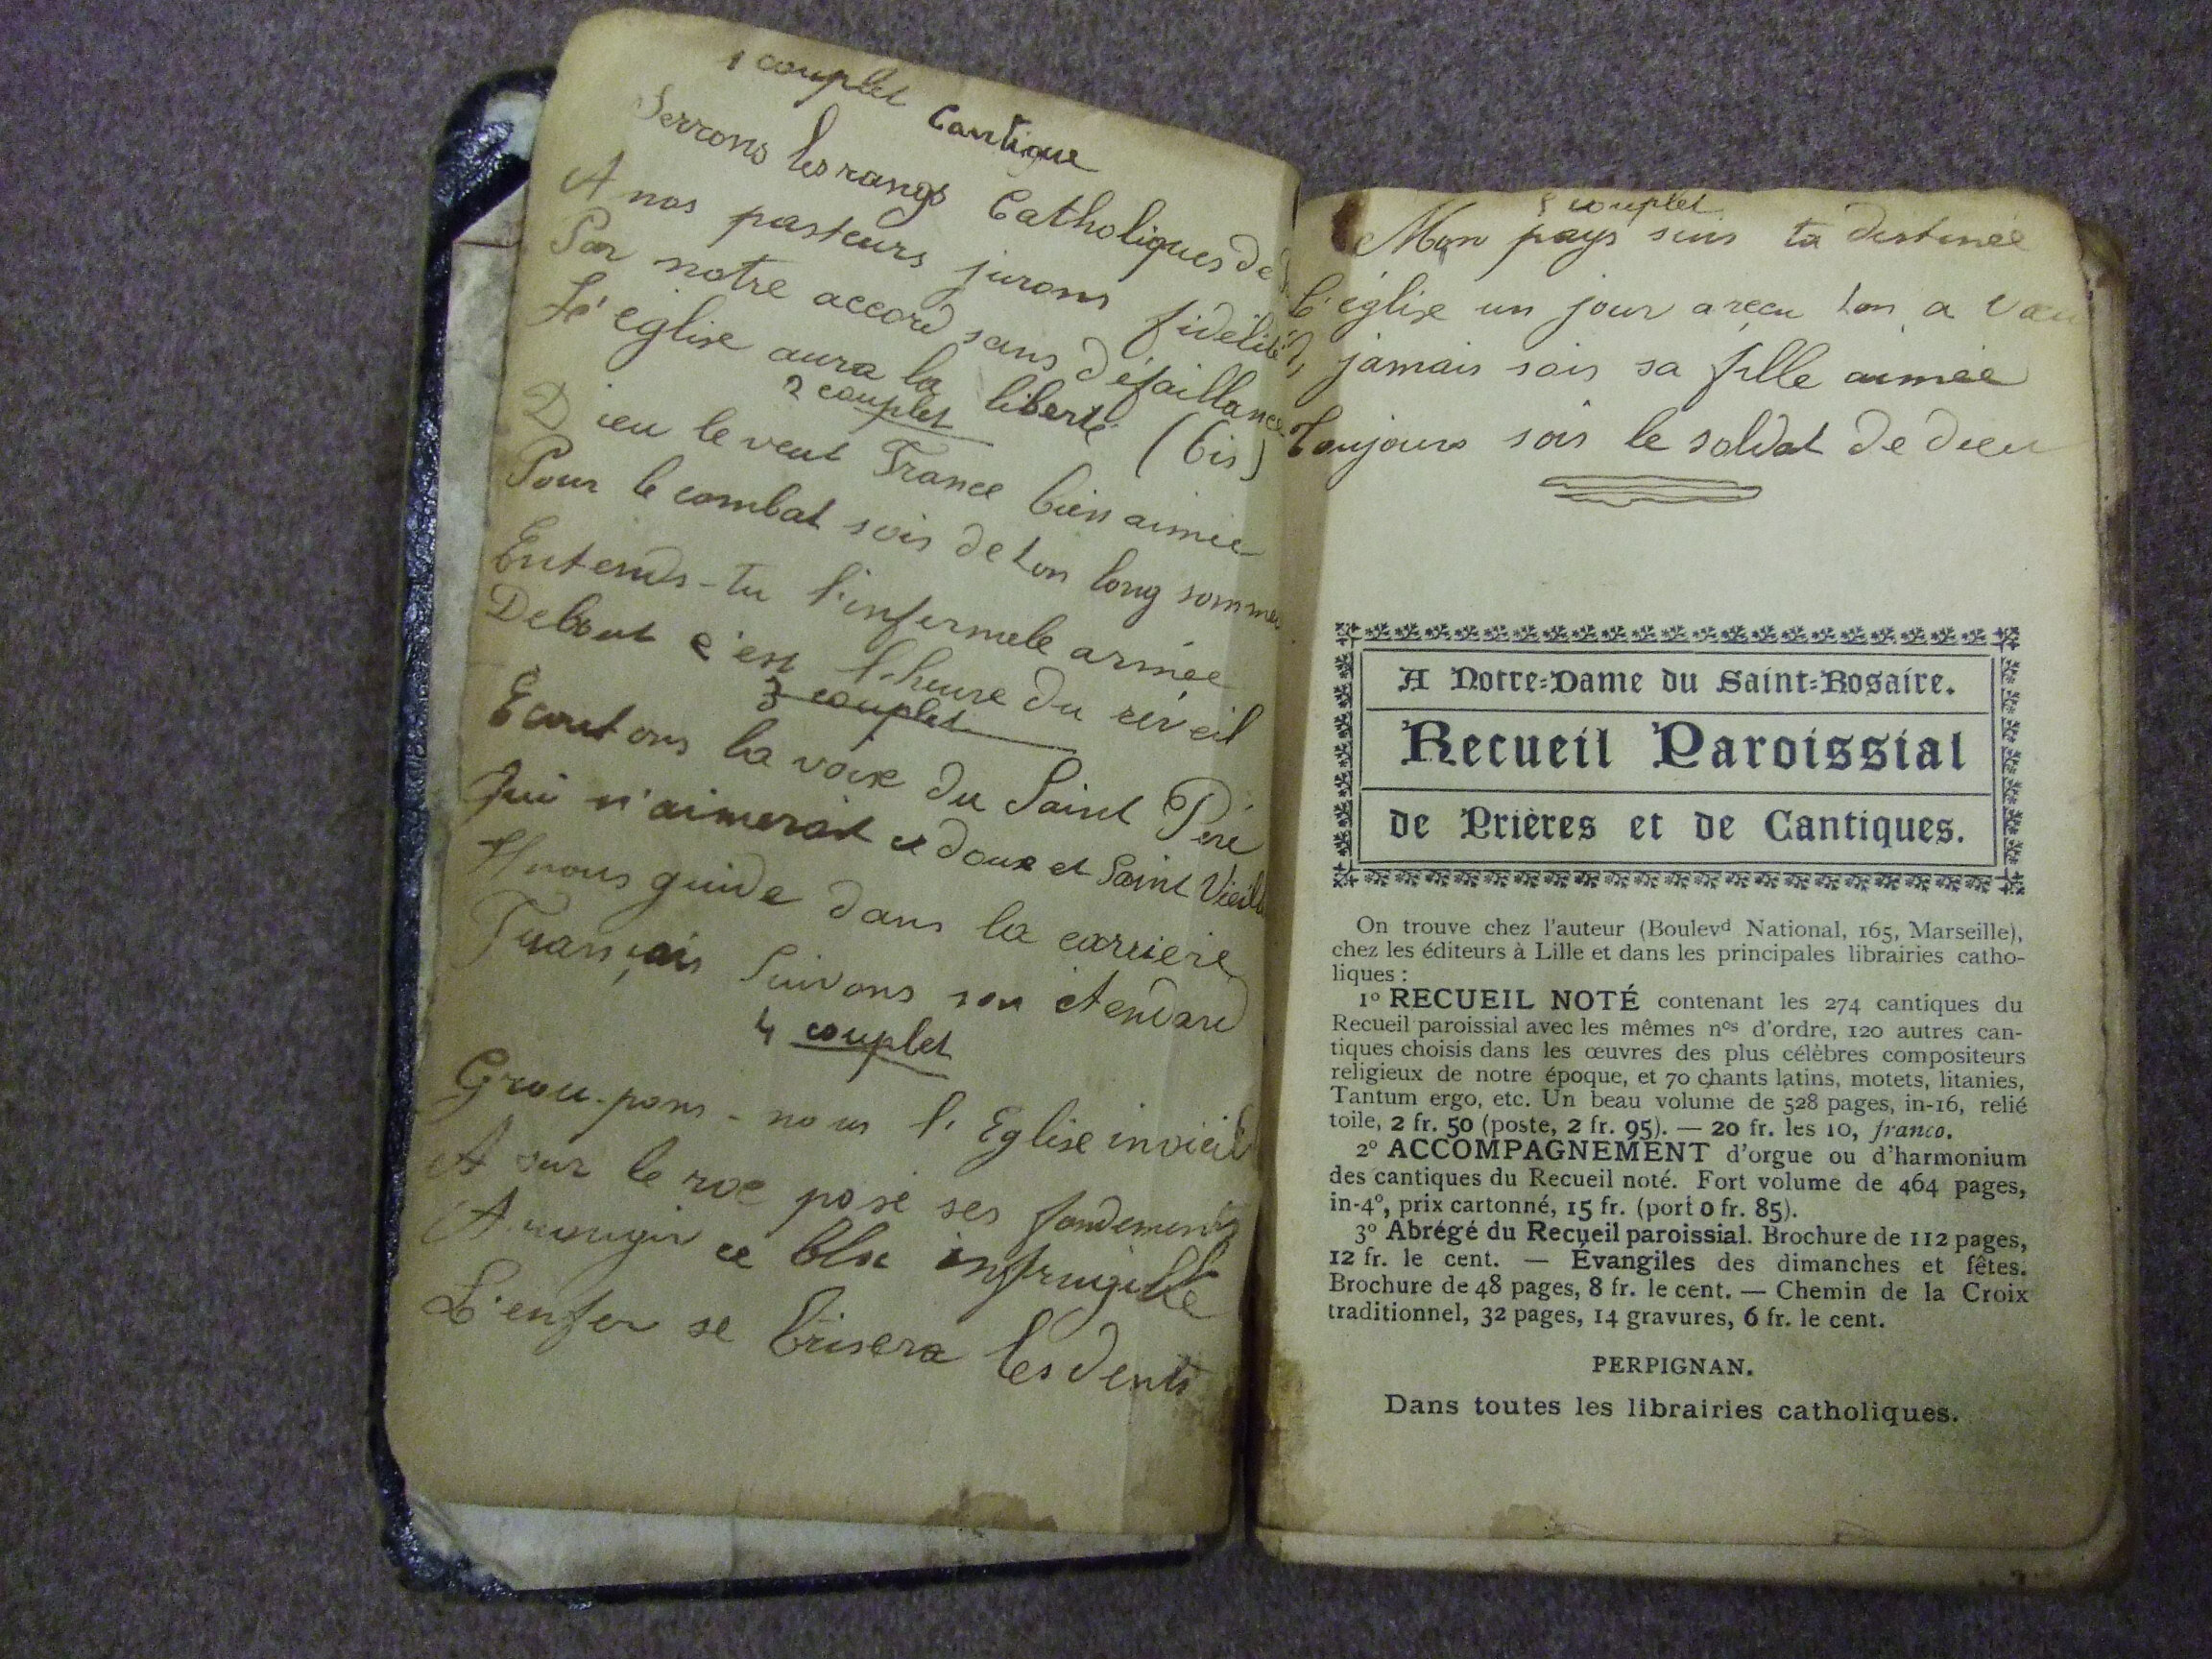 1 couplet Cantique
Serrons les rangs Catholiques de
A nos pasteurs jurons fidélité
Par notre accord sans défaillance
L'église aura la liberté (bis)
2 couplet
Dieu le veut France bien aimée
Pour le combat sois de ton long somme
Entends-tu l'infernele armée
Debout c'est l'heure du réveil
3 couplet
Ecoutons la voix du Saint Père
Qui n'aimerait ce doux et Saint Vieill
Il nous guide dans la carrière
Français Suivons son étendard
4 couplet
Grou-pons-nous l'Eglise invicib
A sur le roc posé ses fondements
A rougir ce bloc infrangible
L'enfer se brisera les dents
5 couplet
Mon pays suis ta destinée
L'église un jour a reçu ton a veu
jamais sois sa fille aimée
Toujours sois le soldat de dieu
A Notre-Dame du Saint-Rosaire.
Recueil Paroissial
de Prières et de Cantiques.
On trouve chez l'auteur (Boulevd National, 165, Marseille),
chez les éditeurs à Lille et dans les principales librairies catho-
liques :
1° RECUEIL NOTÉ contenant les 274 cantiques du
Recueil paroissial avec les mêmes nos d'ordre, 120 autres can-
tiques choisis dans les œuvres des plus célèbres compositeurs
religieux de notre époque, et 70 chants latins, motets, litanies,
Tantum ergo, etc. Un beau volume de 528 pages, in-16, relié
toile, 2 fr. 50 (poste, 2 fr. 95). — 20 fr. les 10, franco.
2° ACCOMPAGNEMENT d'orgue ou d'harmonium
des cantiques du Recueil noté. Fort volume de 464 pages,
in-4°, prix cartonné, 15 fr. (port 0 fr. 85).
3° Abrégé du Recueil paroissial. Brochure de 112 pages,
12 fr. le cent. — Évangiles des dimanches et fêtes.
Brochure de 48 pages, 8 fr. le cent. — Chemin de la Croix
traditionnel, 32 pages, 14 gravures, 6 fr. le cent.
PERPIGNAN.
Dans toutes les librairies catholiques.